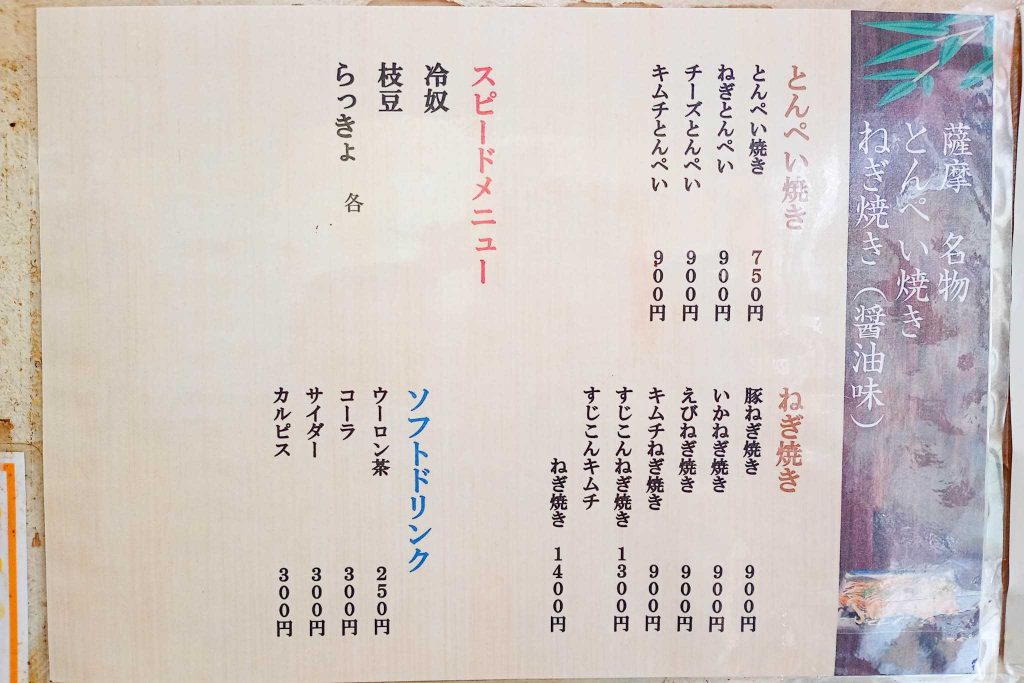 薩摩 名物
とんぺい焼き
ねぎ焼き(醤油味)
とんぺい焼き
とんぺい焼き 750円
ねぎとんぺい 900円
チーズとんぺい 900円
キムチとんぺい 900円
ねぎ焼き
豚ねぎ焼き 900円
いかねぎ焼き 900円
えびねぎ焼き 900円
キムチねぎ焼き 900円
すじこんねぎ焼き 1300円
すじこんキムチ
ねぎ焼き 1400円
スピードメニュー
冷奴
枝豆
らっきょ 各
ソフトドリンク
ウーロン茶 250円
コーラ 300円
サイダー 300円
カルピス 300円